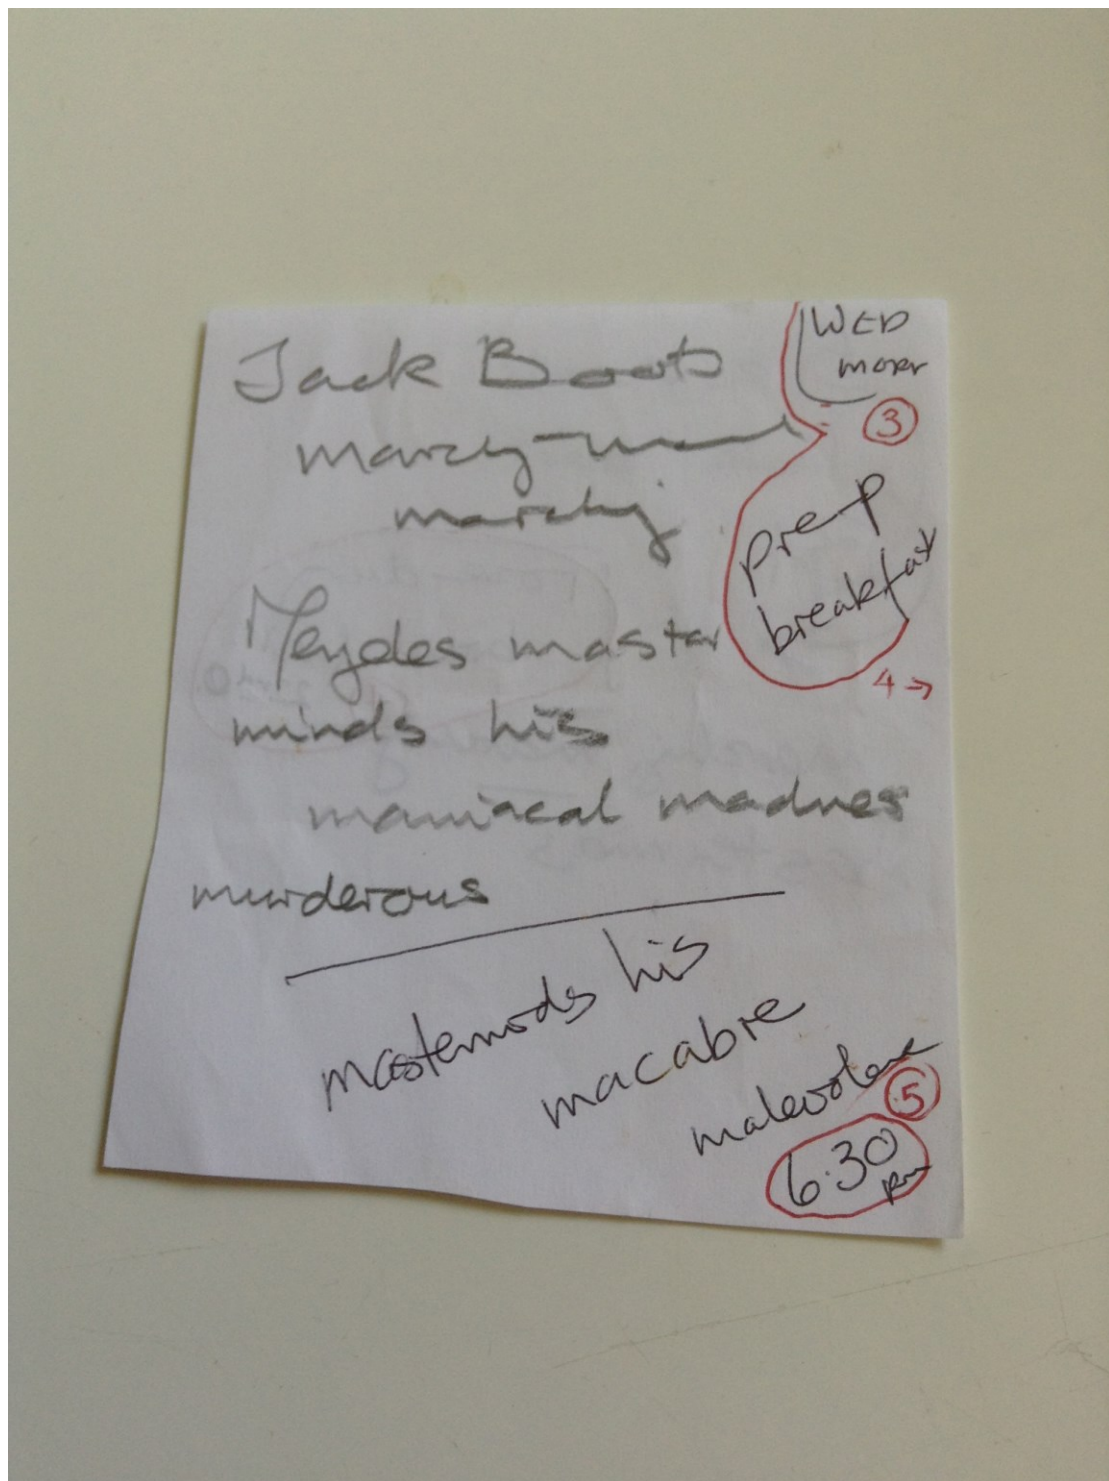 Jack Boots
marchg
marchg
WED
morn
3
prep
breakfast
4 →
master
minds his
maniacal madness
murderous
masterminds his
macabre
malevolence
5
6.30
pm